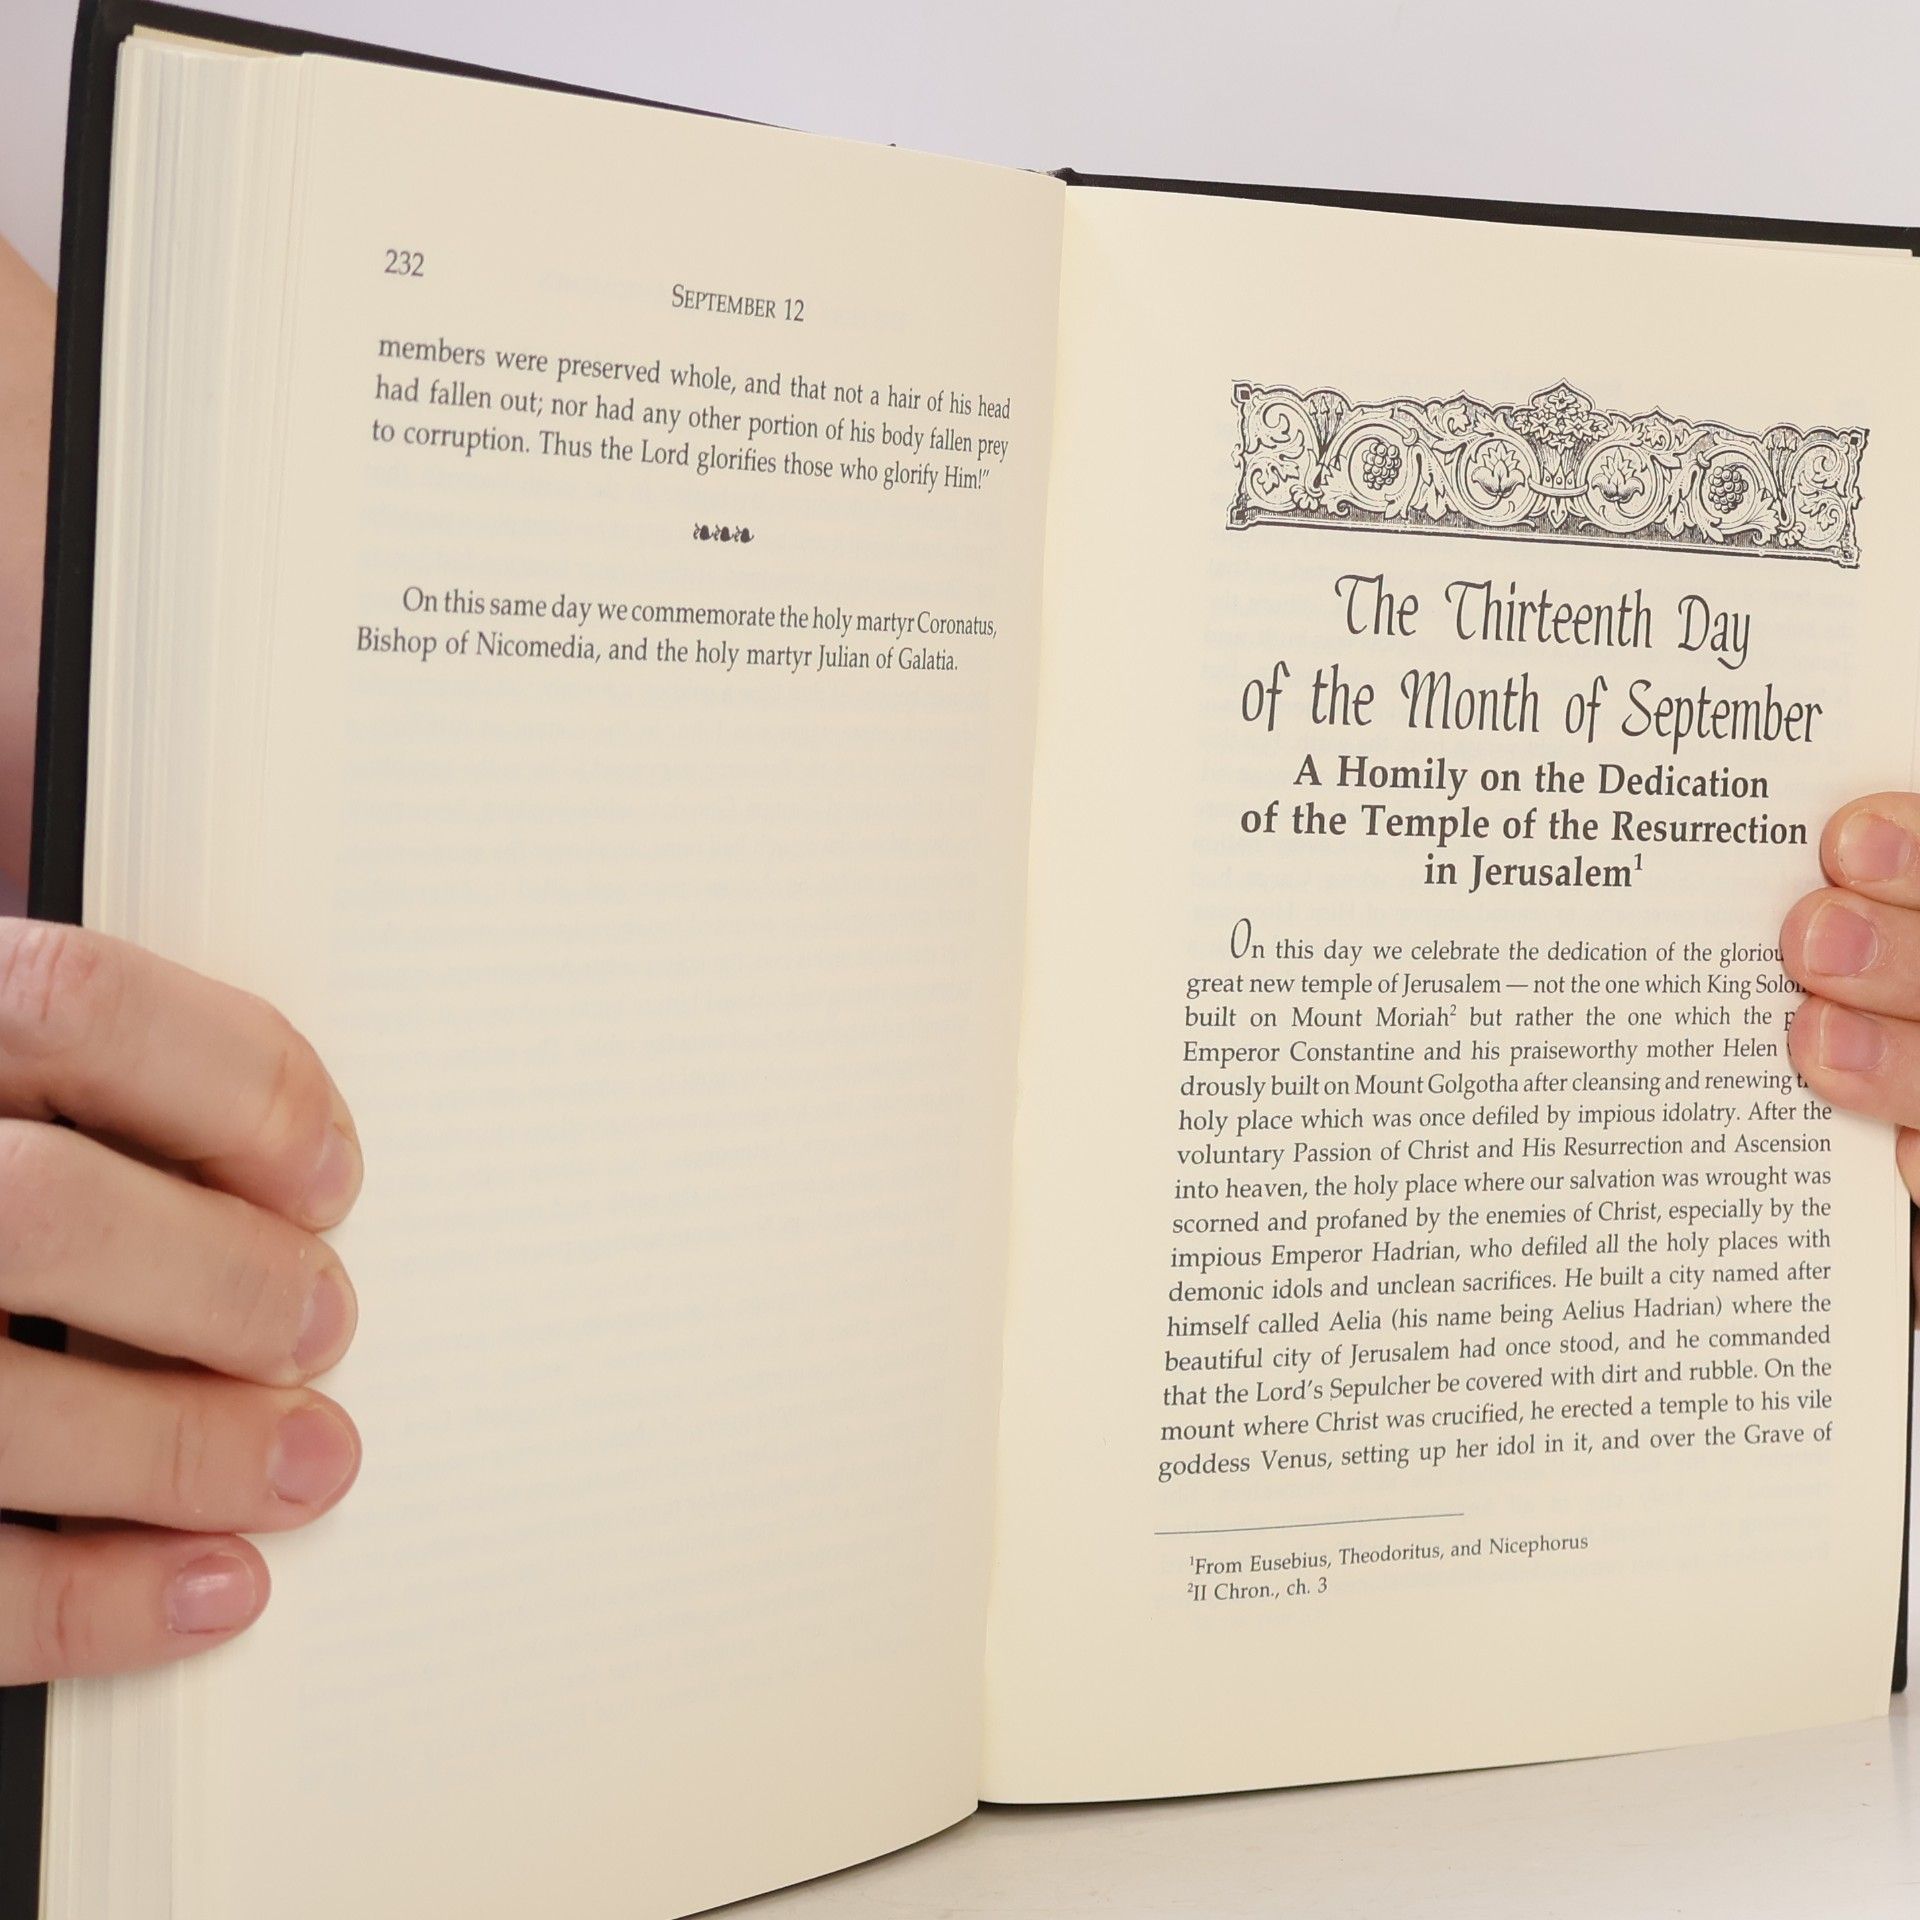 232
SEPTEMBER 12
members were preserved whole, and that not a hair of his head
had fallen out; nor had any other portion of his body fallen prey
to corruption. Thus the Lord glorifies those who glorify Him!”
On this same day we commemorate the holy martyr Coronatus,
Bishop of Nicomedia, and the holy martyr Julian of Galatia.
The Thirteenth Day
of the Month of September
A Homily on the Dedication
of the Temple of the Resurrection
in Jerusalem¹
On this day we celebrate the dedication of the
great new temple of Jerusalem — not the one which King
built on Mount Moriah² but rather the one which the
Emperor Constantine and his praiseworthy mother Helen
drously built on Mount Golgotha after cleansing and renewing
holy place which was once defiled by impious idolatry. After the
voluntary Passion of Christ and His Resurrection and Ascension
into heaven, the holy place where our salvation was wrought was
scorned and profaned by the enemies of Christ, especially by the
impious Emperor Hadrian, who defiled all the holy places with
demonic idols and unclean sacrifices. He built a city named after
himself called Aelia (his name being Aelius Hadrian) where the
beautiful city of Jerusalem had once stood, and he commanded
that the Lord’s Sepulcher be covered with dirt and rubble. On the
mount where Christ was crucified, he erected a temple to his vile
goddess Venus, setting up her idol in it, and over the Grave of
¹From Eusebius, Theodoritus, and Nicephorus
²II Chron., ch. 3